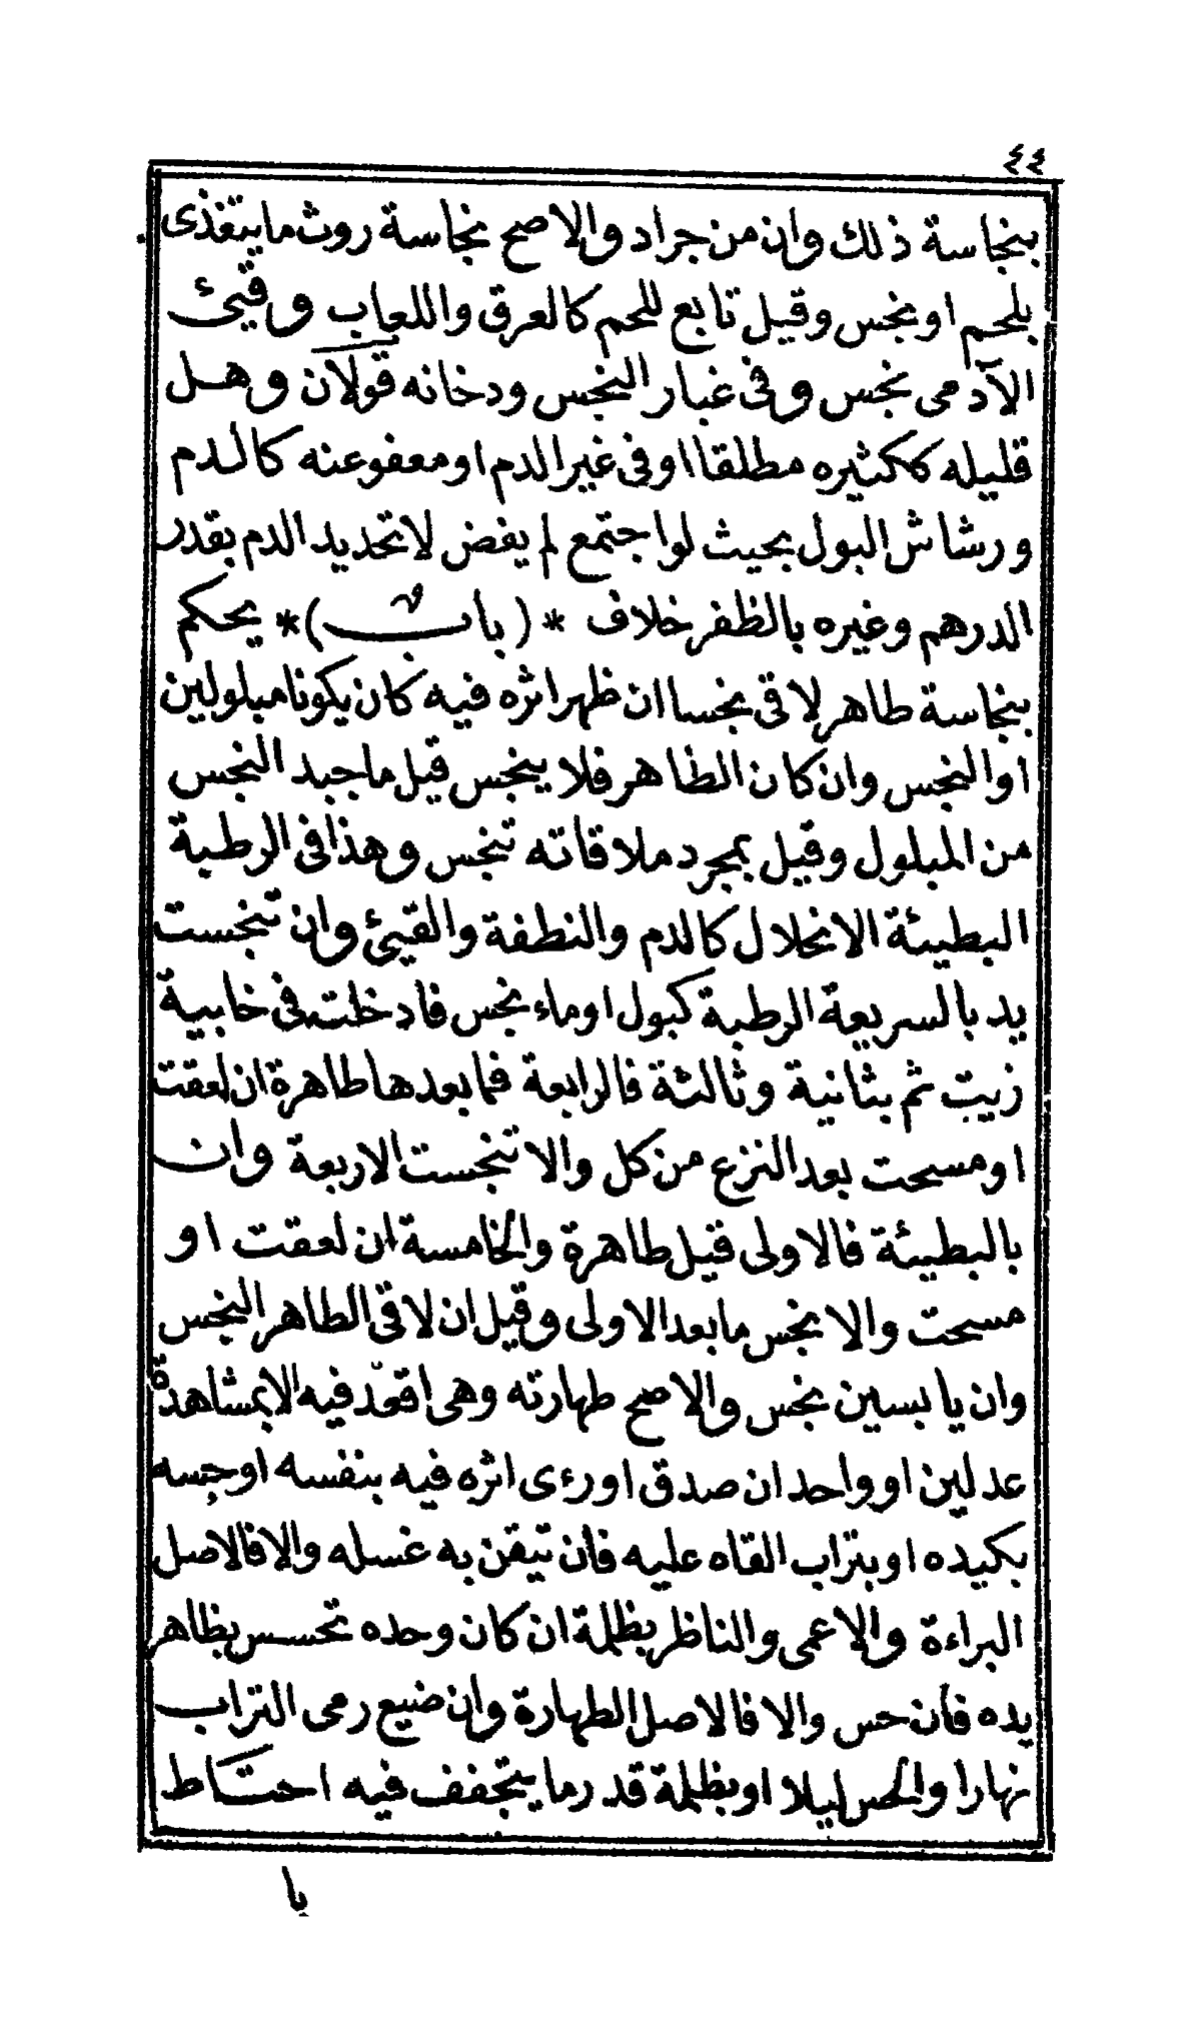 ٤٤
بنجاسة ذلك وان من جراد والاصح نجاسة روث ما يتغذى
بلحم او نجس وقيل تابع للحم كالعرق واللعاب وقيئ
الآدمى نجس وفى غبار النجس ودخانه قولان وهل
قليله ككثيره مطلقا او فى غير الدم او معفو عنه كالدم
ورشاش البول بحيث لو اجتمع لم يفض لا تحديد الدم بقدر
الدرهم وغيره بالظفر خلاف * ( باب ) * يحكم
بنجاسة طاهر لاقى نجسا ان ظهر اثره فيه كأن يكونا مبلولين
او النجس وان كان الطاهر فلا ينجس قيل ما جبد النجس
من المبلول وقيل بمجرد ملاقاته تنجس وهذا فى الرطبة
البطيئة الانحلال كالدم والنطفة والقيئ وان تنجست
يد بالسريعة الرطبة كبول او ماء نجس فادخلت فى خابية
زيت ثم بثانية وثالثة فالرابعة فما بعدها طاهرة ان لعقت
او مسحت بعد النزع من كل والا تنجست الاربعة وان
بالبطيئة فالاولى قيل طاهرة والخامسة ان لعقت او
مسحت والا نجس ما بعد الاولى وقيل ان لاقى الطاهر النجس
وان يابسين نجس والاصح طهارته وهى اقعد فيه الا بمشاهدة
عدلين او واحد ان صدق او رءى اثره فيه بنفسه او جسه
بكيده او بتراب القاه عليه فأن تيقن به غسله والا فالاصل
البراءة والاعمى والناظر بظلمة ان كان وحده تحسس بظاهر
يده فأن حس والا فالاصل الطهارة وان ضيع رمى التراب
نهارا والحس ليلا او بظلمة قدر ما يتجفف فيه احتاط
يا